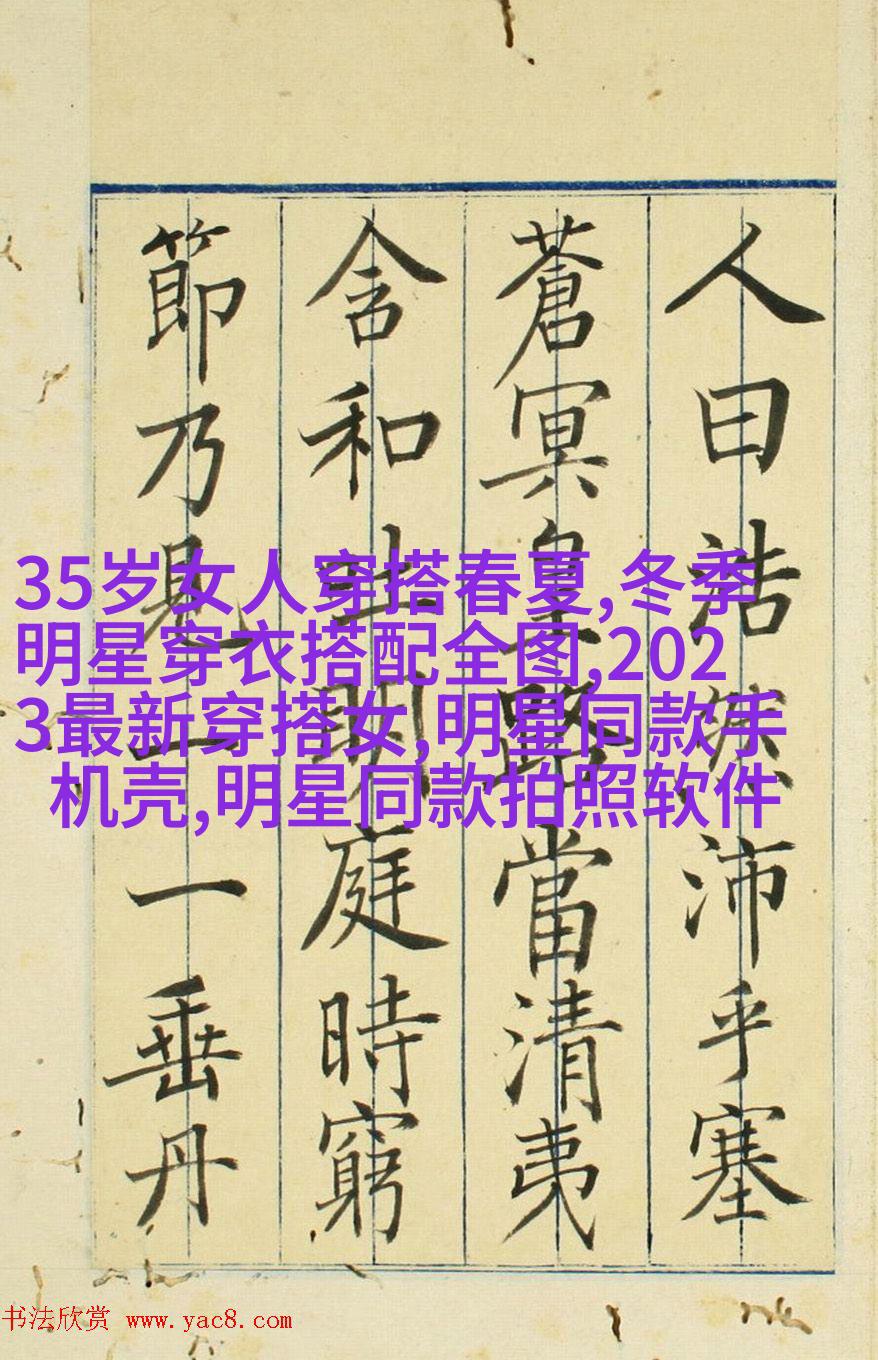 人曰浩然沛乎塞
蒼冥皇路當清夷
含和吐明庭時窮
節乃見一一垂丹
35岁女人穿搭春夏,冬季
明星穿衣搭配全图,202
3最新穿搭女,明星同款手
机壳,明星同款拍照软件
书法欣赏 www.yac8.com